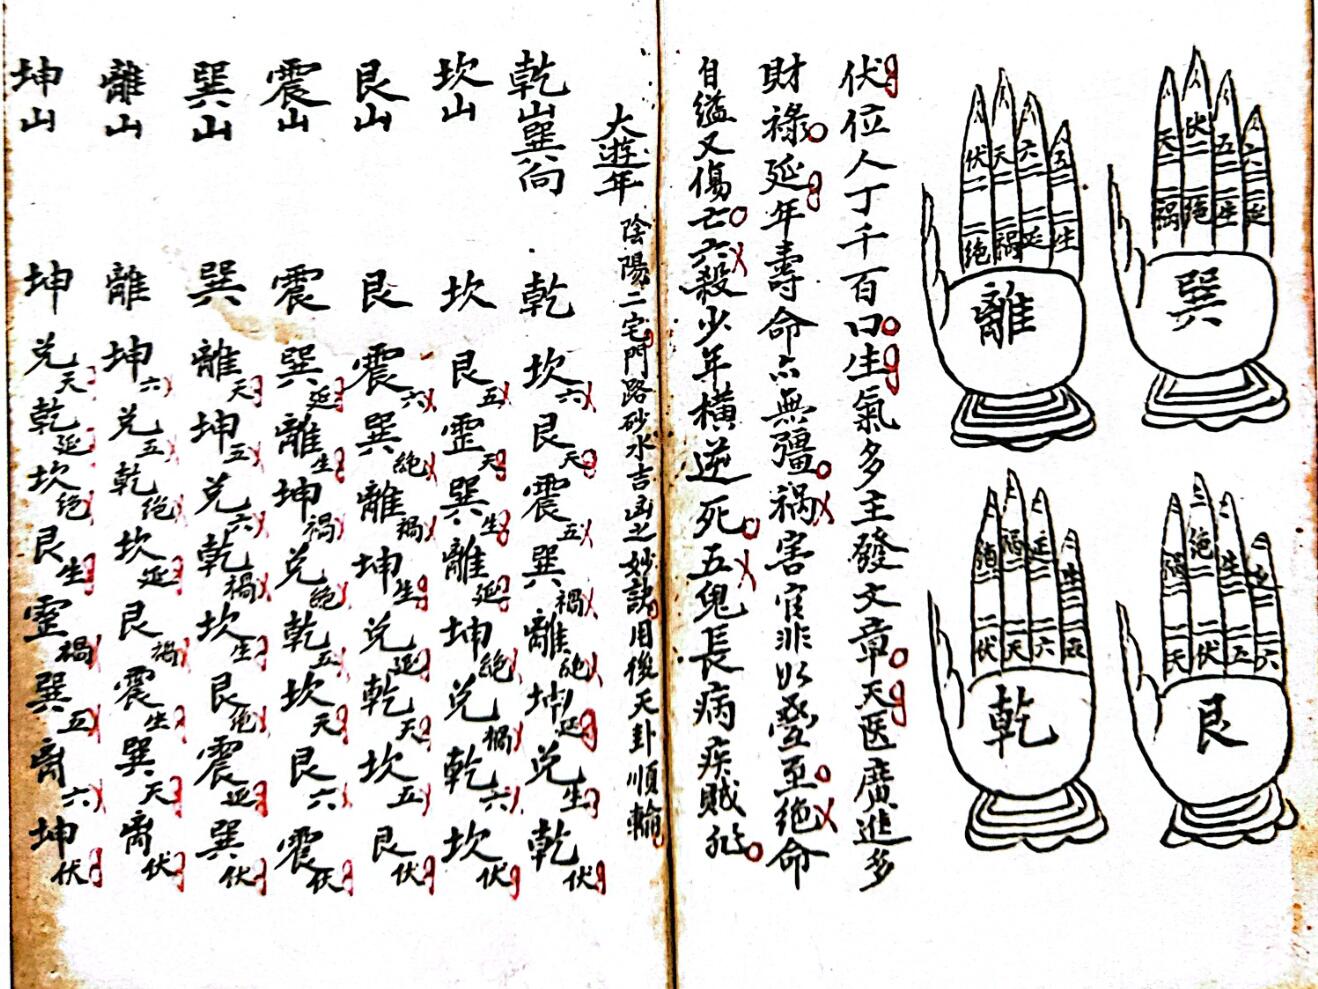 巽
天二 伏二 五二 六二
二禍 二絕 二生 二延
離
伏二 天二 六二 五二
二絕 二禍 二延 二生
艮
禍二 絕二 生二
二天 二伏 二五 二六
乾
絕二 禍二 延二 生二
二伏 二天 二六 二五
伏位人丁千百口生氣多主發文章天医廣進多
財祿延年壽命亦無彊禍害官非以疊至絕命
自縊又傷亡六殺少年橫逆死五鬼長病疾賊
大遊年 陰陽二宅門路砂水吉凶之妙訣用後天卦順輪
乾山巽向 乾 坎六 艮天 震五 巽禍 離絕 坤延 兌生 乾伏
坎山 坎 艮五 震天 巽生 離延 坤絕 兌禍 乾六 坎伏
艮山 艮 震六 巽絕 離禍 坤生 兌延 乾天 坎五 艮伏
震山 震 巽延 離生 坤禍 兌絕 乾五 坎天 艮六 震伏
巽山 巽 離天 坤五 兌六 乾禍 坎生 艮絕 震延 巽伏
離山 離 坤六 兌五 乾絕 坎延 艮禍 震生 巽天 离伏
坤山 坤 兌天 乾延 坎絕 艮生 震禍 巽五 离六 坤伏